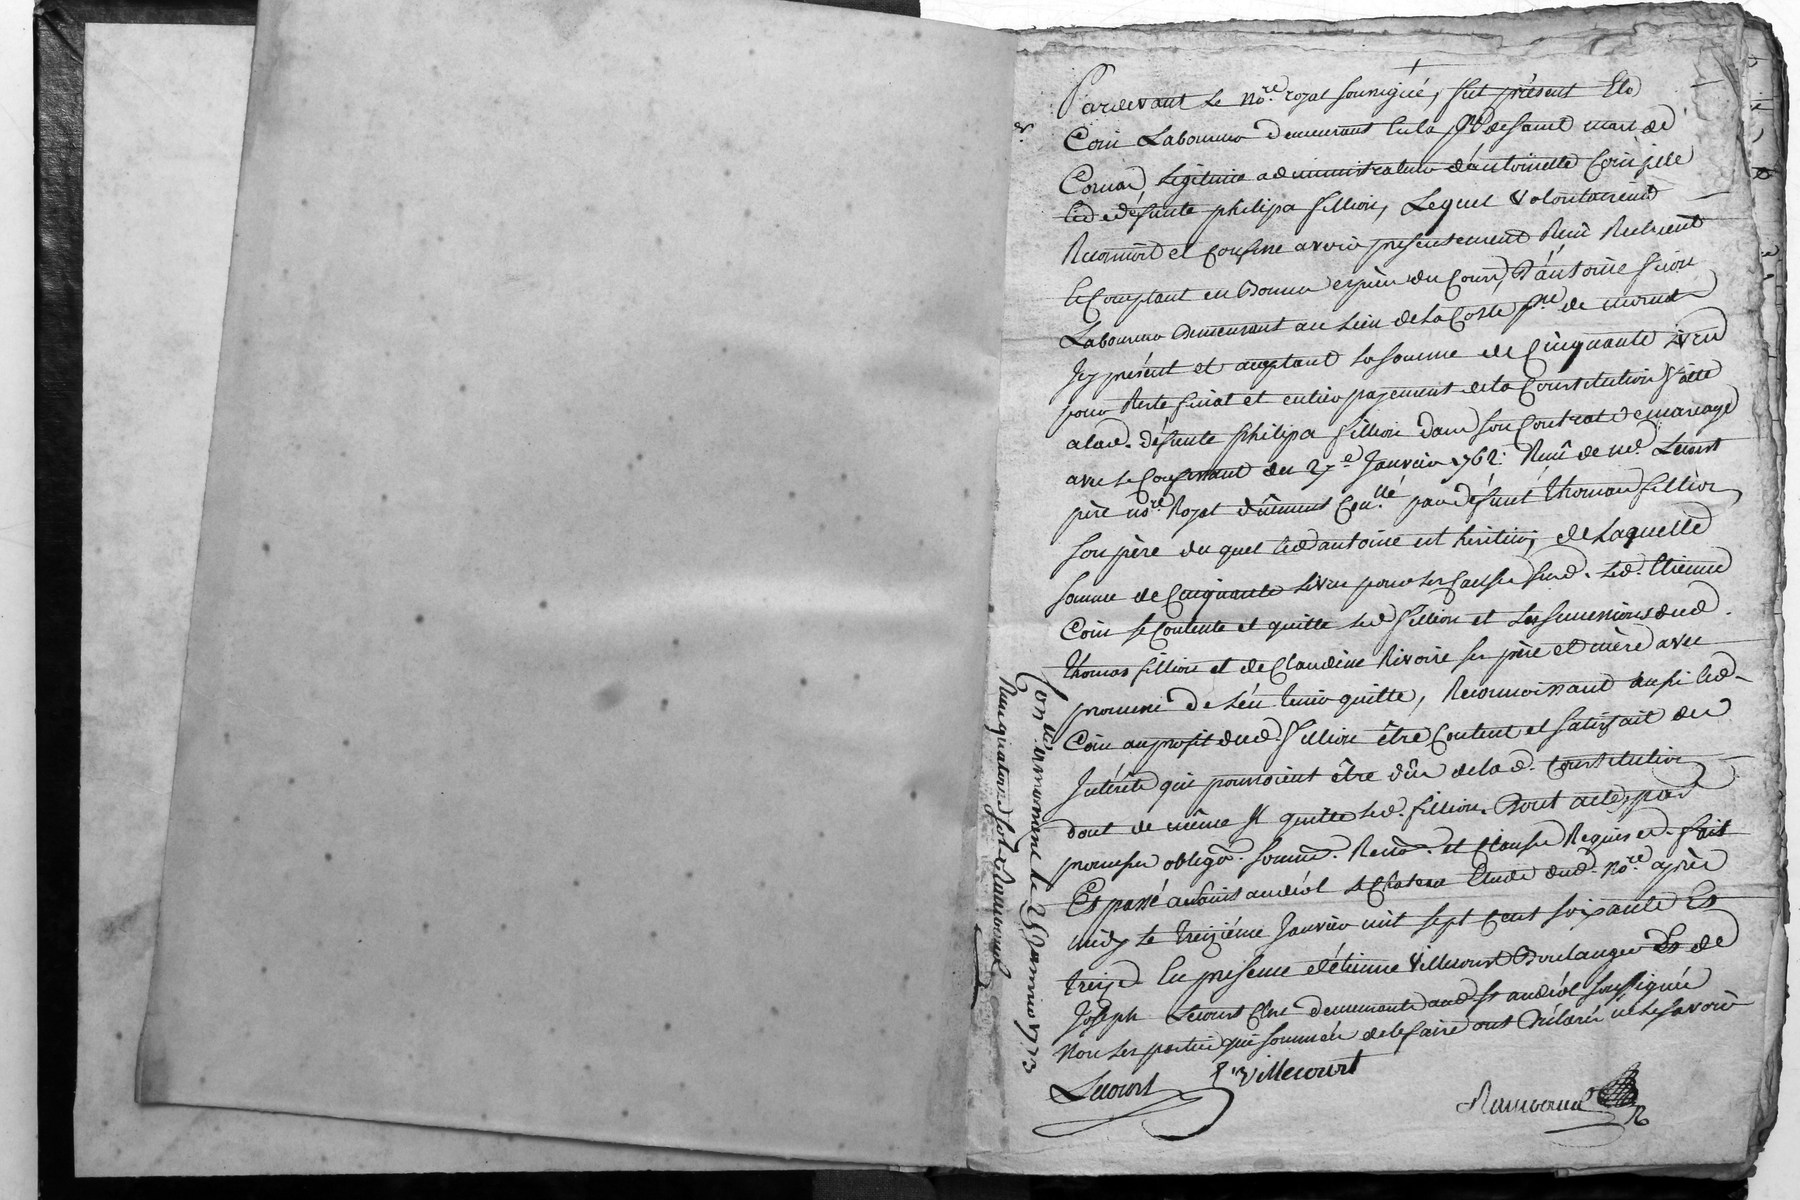 Pardevant le no.re royal soussigné, fut présent Ete
Coin Laboureur demeurant en la p.sse de saint mars de
Cornas, Legitime administrateur d'antoinette Coin fille
de défunte philipa fillion, Lequel volontairem.t
Reconnoit et Confesse avoir présentement Reçu Reelment
et Comptant en Bonnes espèces du Cours, D'antoine fillion
Laboureur demeurant au lieu de la Coste p.sse de
Icy présent et acceptant la somme de Cinquante livres
pour Reste final et entier payement de la Constitution faitte
a lad. défunte philipa fillion dans son Contrat de mariage
avec le Confessant du 27.e Janvier 1762. Reçû de m.e Lecourt
père no.re Royal dûment Con.llé par défunt thomas fillion
son père du quel led antoine est heritier, de Laquelle
somme de Cinquante livres pour les Causes susd. led. Etienne
Coin se Contente et quitte led fillion et les successions dud.
thomas fillion et de Claudine Rivoire ses père et mère avec
promesse de l'en tenir quitte, Reconnoissant aussi led.
Coin au profit dud. fillion être Content et satisfait des
Intérêts qui pourroient être dûs de lad. Constitution
dont de même il quitte led. fillion. Dont acte, par
promesses obligōn. soumis. Renōn. et Clauses Requises. fait
Et passé a saint andéol le Chateau Etude dud. No.re après
midy le treizième Janvier mil sept Cent soixante Et
treize En presence d'étienne Villecourt Boulanger Et de
Joseph Lecourt Clerc demeurants aud. st andéol soussignés
Non les parties qui sommées de le faire ont déclaré ne le savoir
Lecourt E Villecourt
Con.lé a mornant le 25 Janvier 1773
Reçu quatorze sols